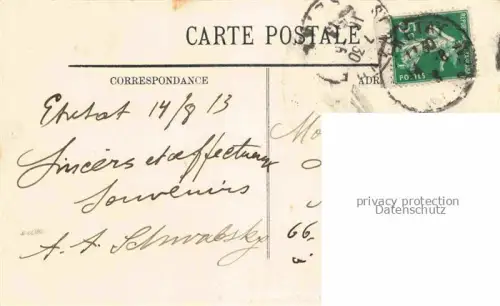 CARTE POSTALE
CORRESPONDANCE
ADR
Etretat 14/8 13
Sincères et affectueux
Souvenirs
A. A. Schwabsky
66-
5
POSTES
privacy protection
Datenschutz